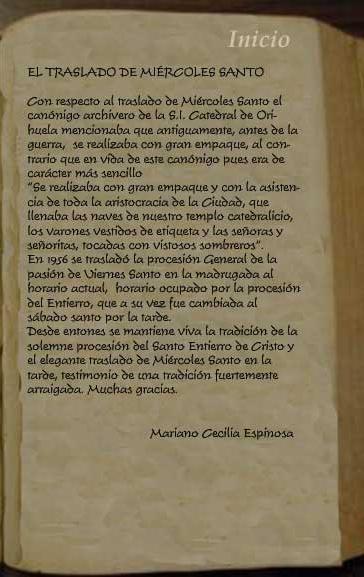 Inicio
EL TRASLADO DE MIÉRCOLES SANTO
Con respecto al traslado de Miércoles Santo el
canónigo archivero de la S.I. Catedral de Ori-
huela mencionaba que antiguamente, antes de la
guerra, se realizaba con gran empaque, al con-
trario que en vida de este canónigo pues era de
carácter más sencillo
"Se realizaba con gran empaque y con la asisten-
cia de toda la aristocracia de la Ciudad, que
llenaba las naves de nuestro templo catedralicio,
los varones vestidos de etiqueta y las señoras y
señoritas, tocadas con vistosos sombreros".
En 1956 se trasladó la procesión General de la
pasión de Viernes Santo en la madrugada al
horario actual, horario ocupado por la procesión
del Entierro, que a su vez fue cambiada al
sábado santo por la tarde.
Desde entones se mantiene viva la tradición de la
solemne procesión del Santo Entierro de Cristo y
el elegante traslado de Miércoles Santo en la
tarde, testimonio de una tradición fuertemente
arraigada. Muchas gracias.
Mariano Cecilia Espinosa